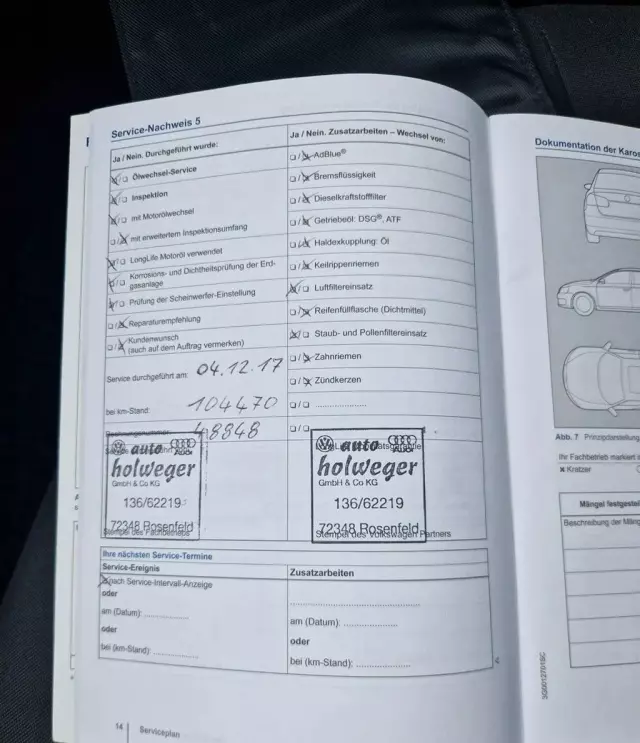 Service-Nachweis 5
Ja / Nein. Durchgeführt wurde:
Ölwechsel-Service
Inspektion
mit Motorölwechsel
mit erweitertem Inspektionsumfang
LongLife Motoröl verwendet
Korrosions- und Dichtheitsprüfung der Erd-
gasanlage
Prüfung der Scheinwerfer-Einstellung
Reparaturempfehlung
Kundenwunsch
(auch auf dem Auftrag vermerken)
Service durchgeführt am: 04.12.17
bei km-Stand: 104470
48848
auto
Audi
holweger
GmbH & Co KG
136/62219
72348 Rosenfeld
Stempel des Fachbetriebs
Ja / Nein. Zusatzarbeiten – Wechsel von:
AdBlue®
Bremsflüssigkeit
Dieselkraftstofffilter
Getriebeöl: DSG®, ATF
Haldexkupplung: Öl
Keilrippenriemen
Luftfiltereinsatz
Reifenfüllflasche (Dichtmittel)
Staub- und Pollenfiltereinsatz
Zahnriemen
Zündkerzen
auto
holweger
GmbH & Co KG
136/62219
72348 Rosenfeld
Stempel des Volkswagen Partners
Ihre nächsten Service-Termine
Service-Ereignis
nach Service-Intervall-Anzeige
oder
am (Datum):
oder
bei (km-Stand):
Zusatzarbeiten
am (Datum):
oder
bei (km-Stand):
14 Serviceplan
Dokumentation der Karos
Abb. 7 Prinzipdarstellung
Ihr Fachbetrieb markiert
Kratzer
Mängel festgestel
Beschreibung der Mäng
3G0012701SC